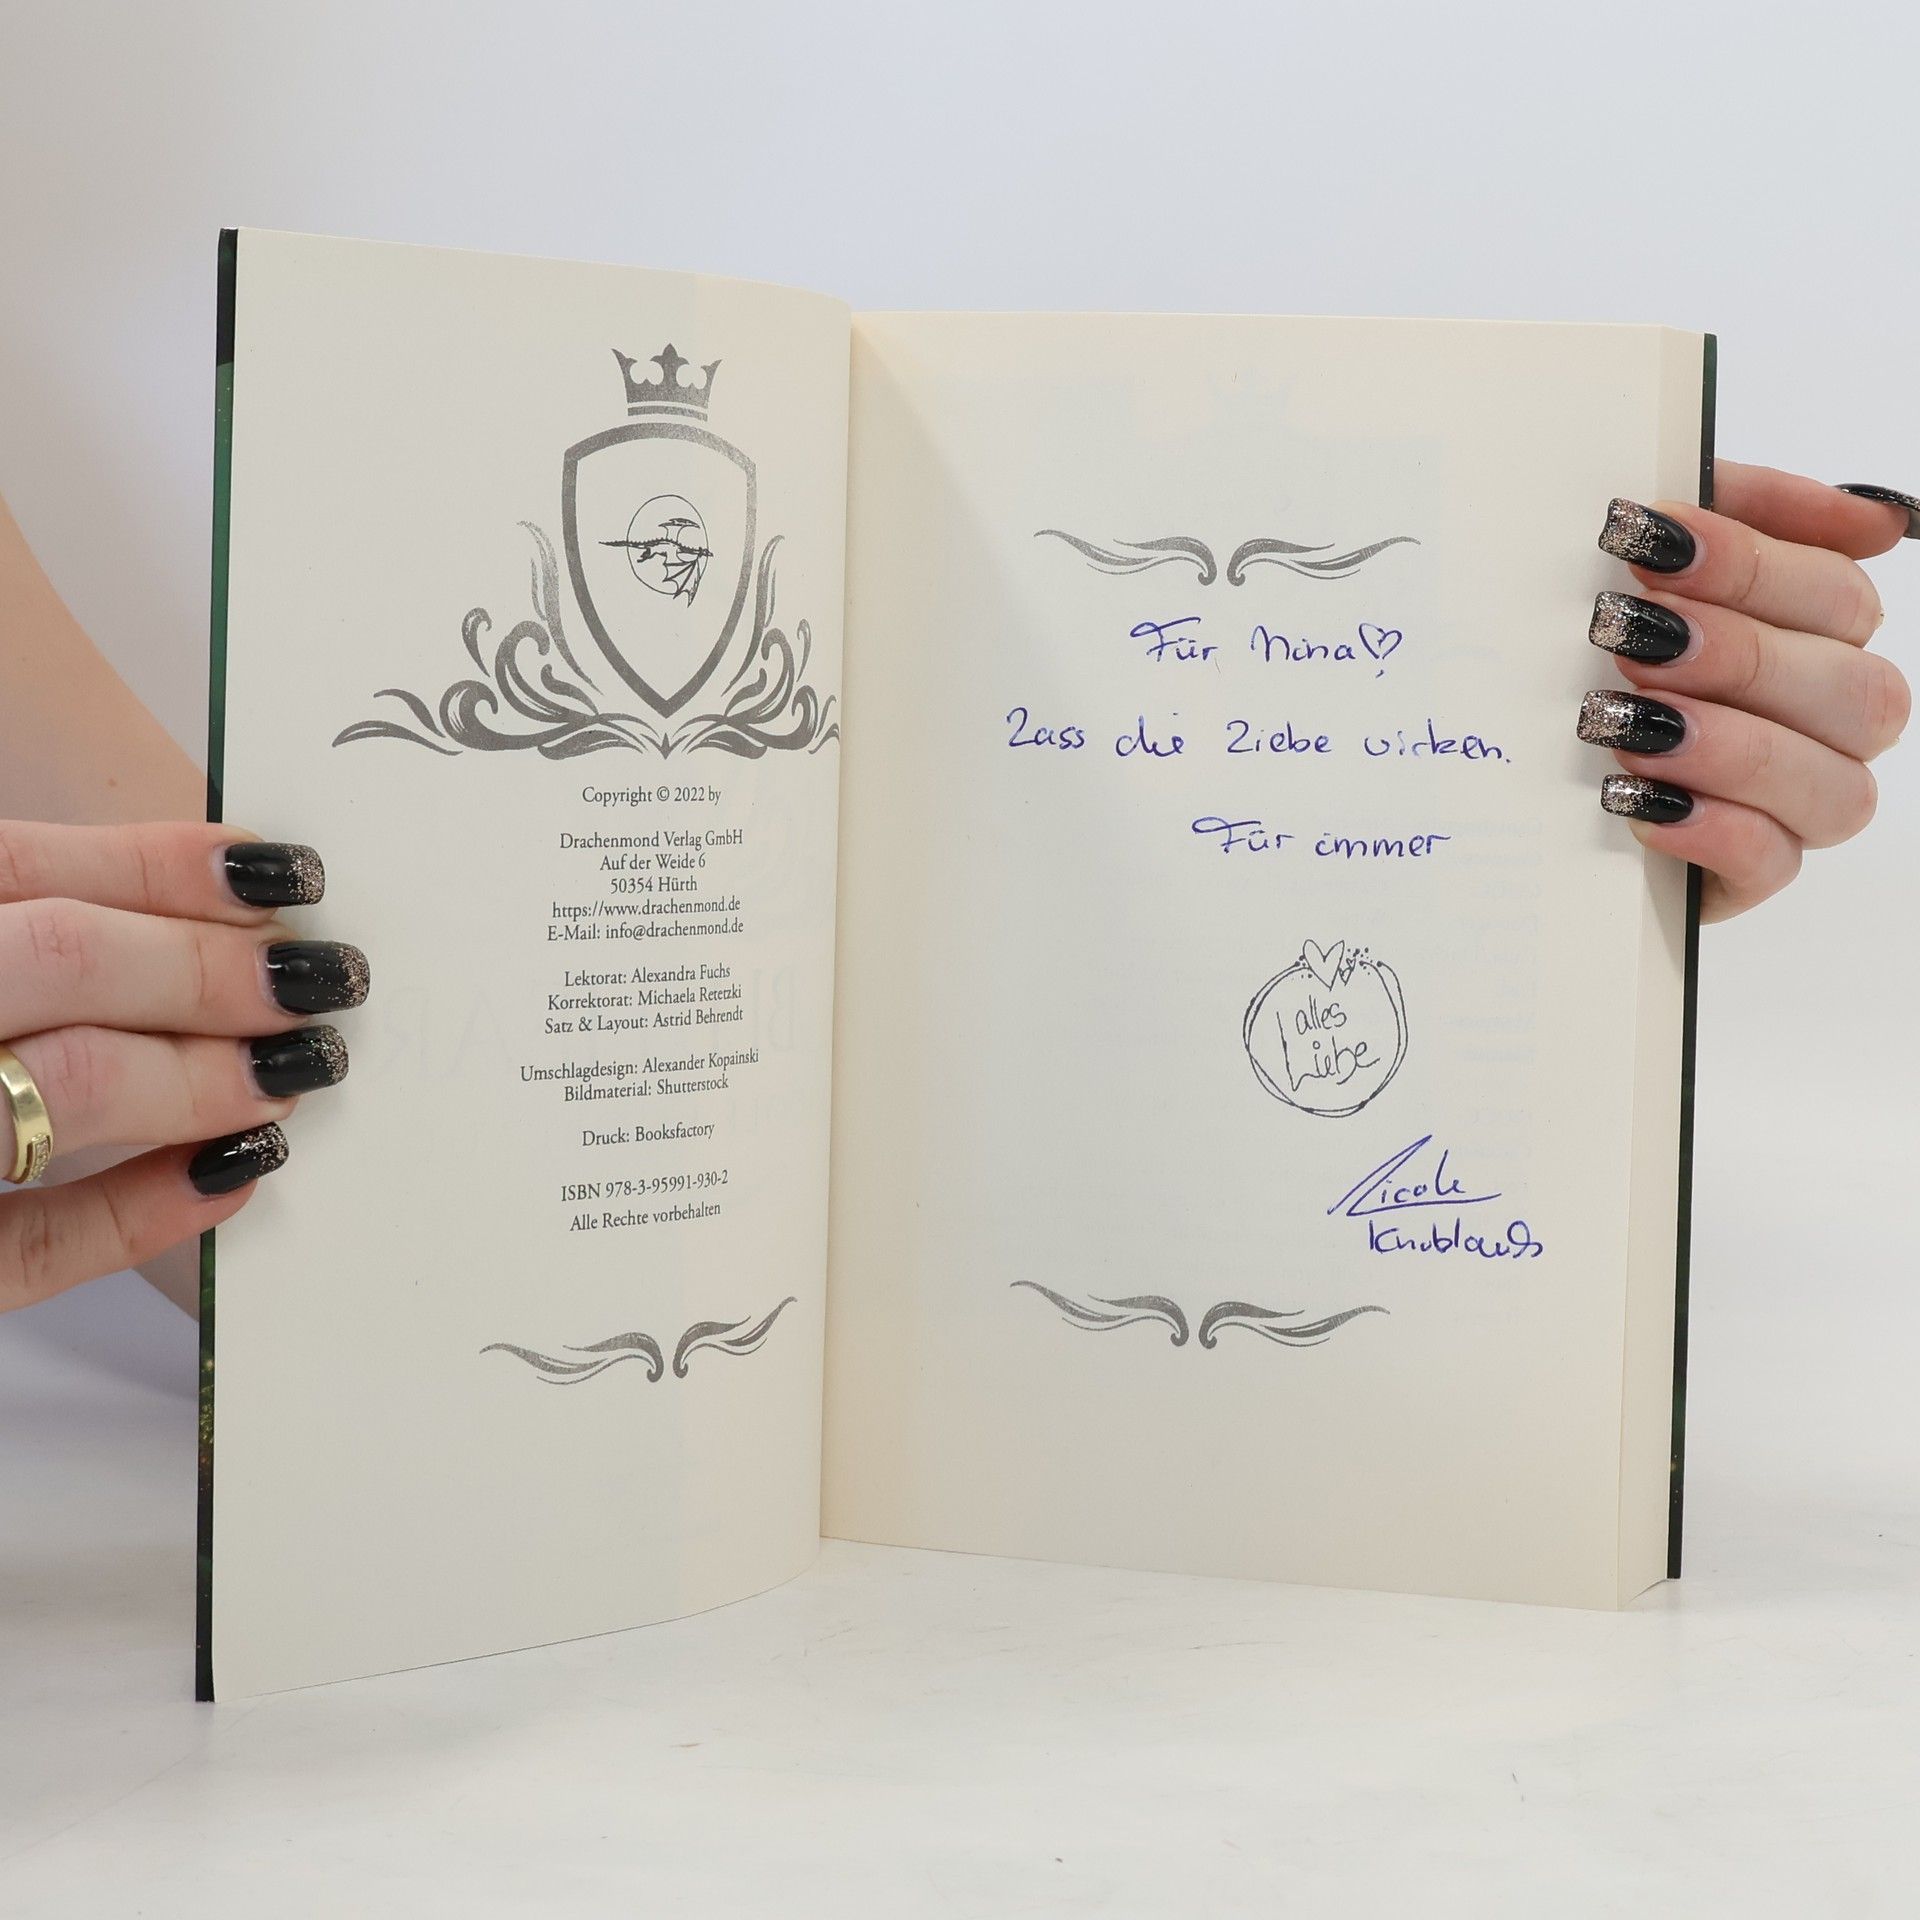 Copyright © 2022 by
Drachenmond Verlag GmbH
Auf der Weide 6
50354 Hürth
https://www.drachenmond.de
E-Mail: info@drachenmond.de
Lektorat: Alexandra Fuchs
Korrektorat: Michaela Retetzki
Satz & Layout: Astrid Behrendt
Umschlagdesign: Alexander Kopainski
Bildmaterial: Shutterstock
Druck: Booksfactory
ISBN 978-3-95991-930-2
Alle Rechte vorbehalten
Für Nina♡
Lass die Liebe wirken.
Für immer
alles
Liebe
Nicole
Knoblauch